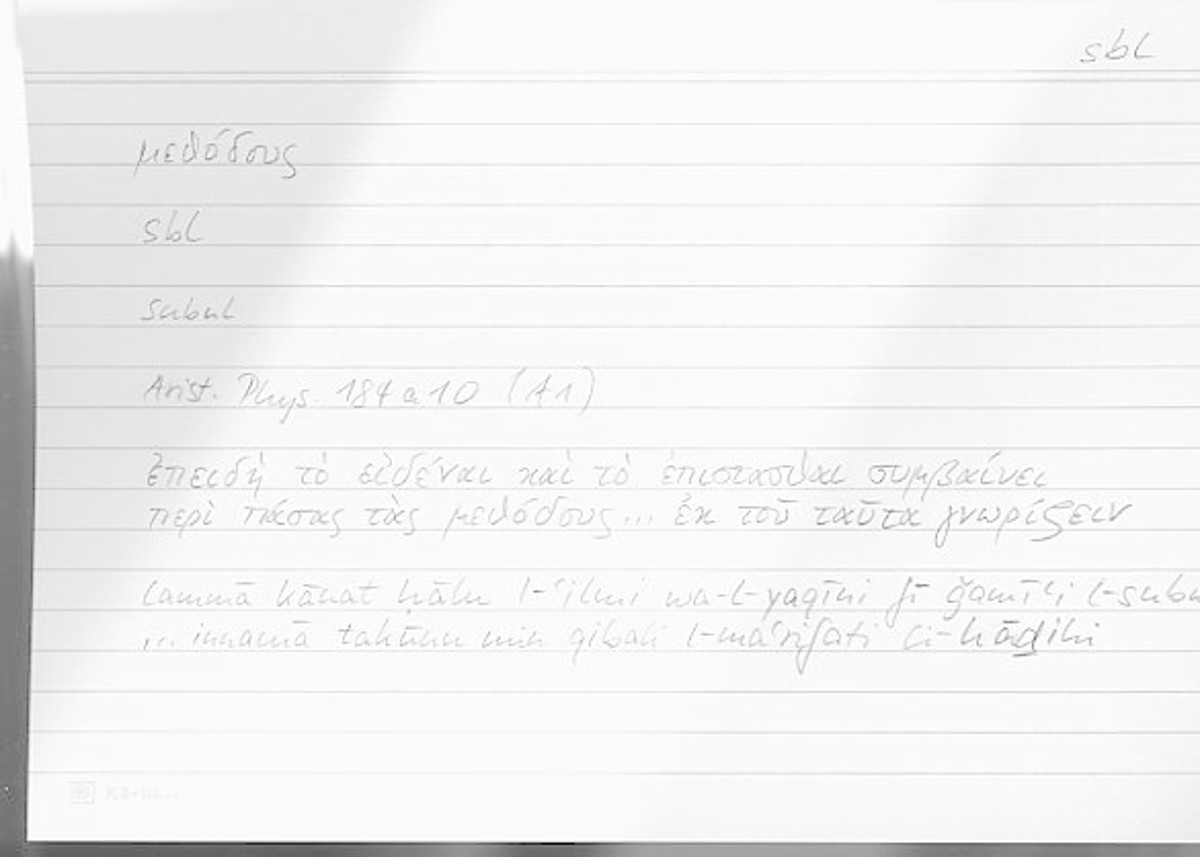 sbl
μεθόδους
sbl
subul
Arist. Phys. 184 a 10 (A 1)
ἐπειδὴ τὸ εἰδέναι καὶ τὸ ἐπίστασθαι συμβαίνει
περὶ πάσας τὰς μεθόδους ... ἐκ τοῦ ταῦτα γνωρίζειν
lammā kānat ḥālu l-ʿilmi wa-l-yaqīni fī ǧamīʿi l-subu
... innamā takūnu min qibali l-maʿrifati li-hāḏihi